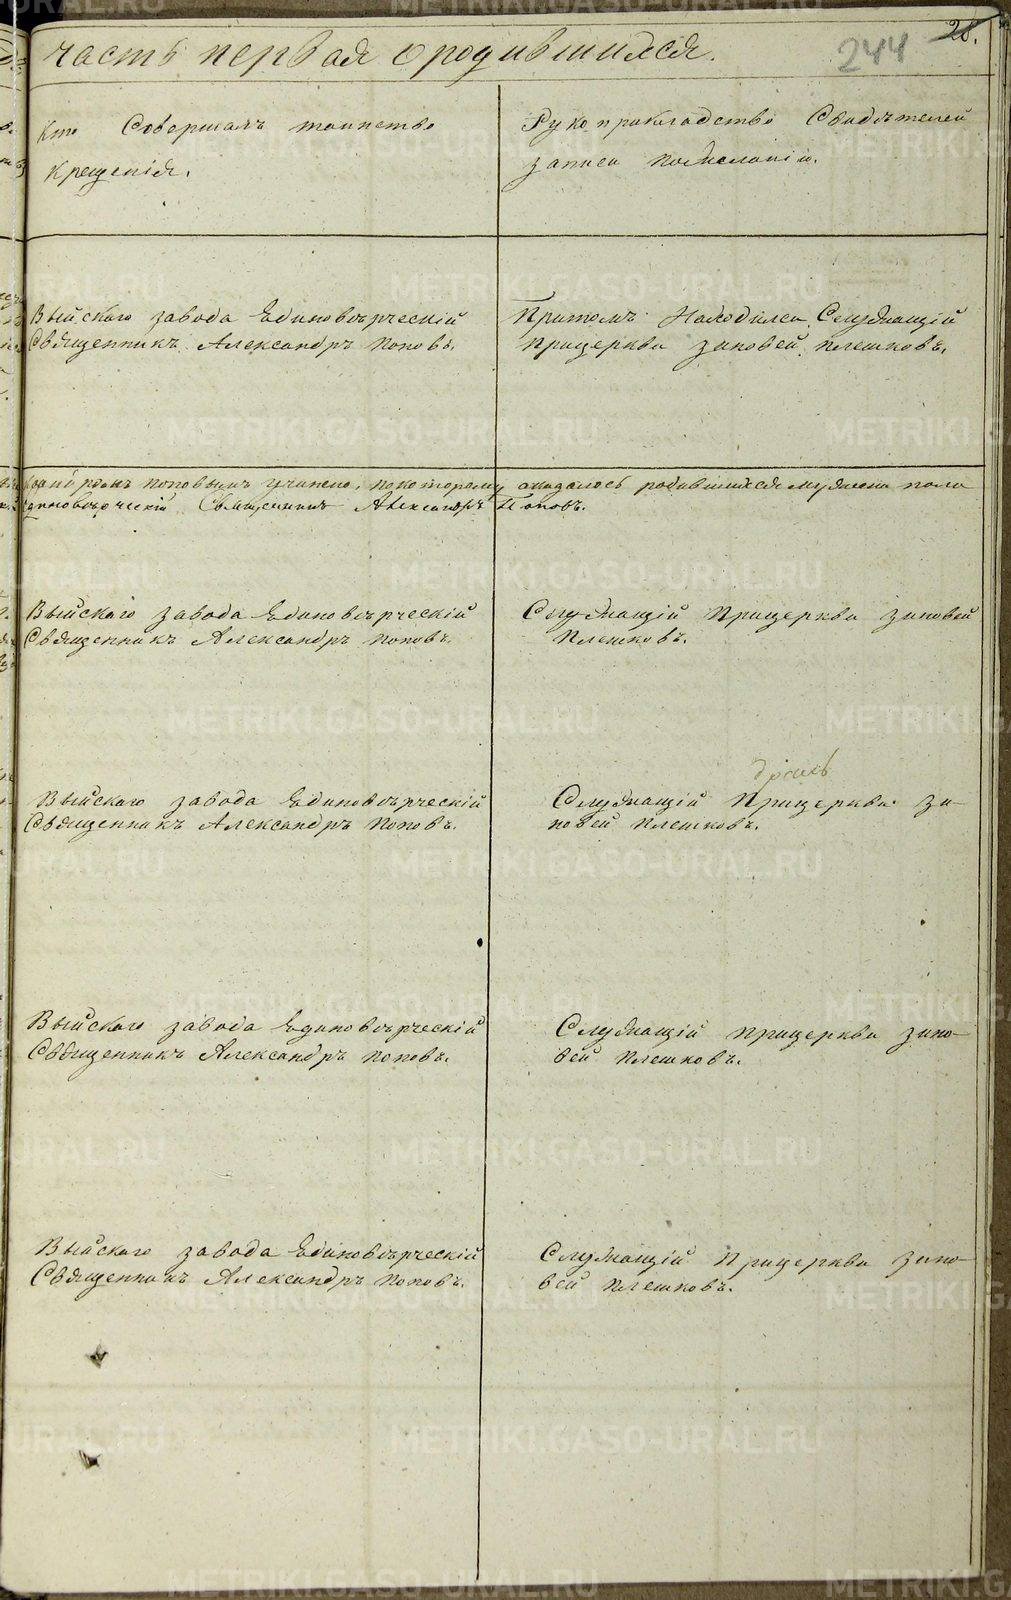 28.
244
часть первая о родившихся.
Кто Совершалъ таинство
крещенія.
Рукоприкладство Свидѣтелей
записи по желанію.
Выйскаго завода Единовѣрческій
Священникъ Александръ Поповъ.
Притомъ Находился Служащій
Прицеркви зиновей Плешковъ.
Поповымъ учинено, по которому оказалось родившихся мужеска пола
Единовѣрческій Священникъ Александръ Поповъ.
Выйскаго завода Единовѣрческій
Священникъ Александръ Поповъ.
Служащій Прицеркви зиновей
Плешковъ.
Выйскаго завода Единовѣрческій
Священникъ Александръ Поповъ.
Служащій Прицеркви зи-
новей Плешковъ.
Выйскаго завода Единовѣрческій
Священникъ Александръ Поповъ.
Служащій прицеркви зино-
вей Плешковъ.
Выйскаго завода Единовѣрческій
Священникъ Александръ Поповъ.
Служащій Прицеркви зино-
вей Плешковъ.
METRIKI.GASO-URAL.RU